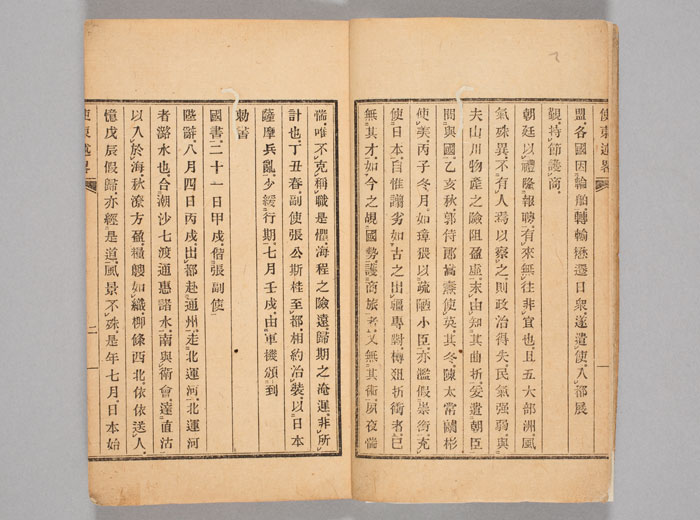 使東述畧
盟各國因輪舶轉輸懋遷日衆遂遣使入都展
覲持節護商
朝廷以禮隆報聘有來無往非宜也且五大部洲風
氣殊異不有人焉以察之則政治得失民氣強弱與
夫山川物產之險阻盈虛末由知其曲折爰遣朝臣
問與國乙亥秋郭侍郎嵩燾使英其冬陳太常蘭彬
使美丙子冬月如璋猥以疏陋小臣亦濫假崇銜充
使日本自惟譾劣如古之出疆專對樽俎折衝者已
無其才如今之覘國勢護商旅者又無其術夙夜惴
惴唯不克稱職是懼海程之險遠歸期之淹遲非所
計也丁丑春副使張公斯桂至都相約治裝以日本
薩摩兵亂少緩行期七月壬戌由軍機頒到
勅書
國書二十一日甲戌偕張副使
陛辭八月四日丙戌出都赴通州走北運河北運河
者潞水也合潮沙七渡通惠諸水南與衛會遠直沽
以入於海秋潦方盈糧艘如織柳條西北依依送人
憶戊辰假歸亦經是道風景不殊是年七月日本始
使東述畧
二